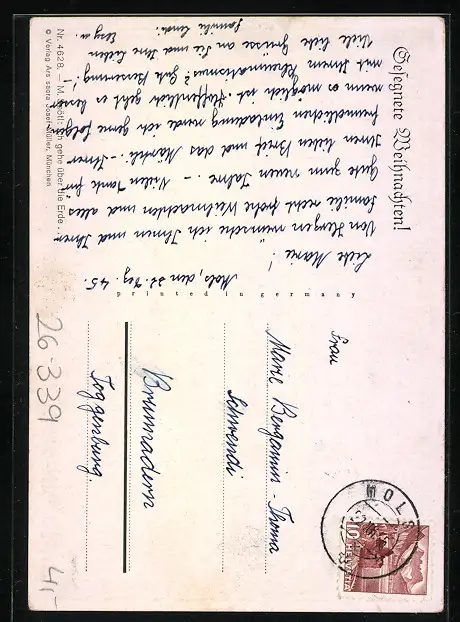 Gesegnete Weihnachten!
Mols, den 21. Dez. 45.
Liebe Marie!
Von Herzen wünsche ich Ihnen und Ihrer
Familie recht frohe Weihnachten und alles
Gute zum neuen Jahre. – Vielen Dank für
Ihren lieben Brief und das Märkli. Ihrer
freundlichen Einladung werde ich gerne folgen,
wenn es möglich ist. Hoffentlich geht es besser
mit Ihrem Rheumatismus? Gute Besserung!
Viele liebe Grüsse an Sie und Ihre lieben
Familie
Nr. 4628. – M. Spötl: „Ich gehe über die Erde ..."
© Verlag Ars sacra Josef Müller, München
printed in germany
Frau
Marie Bengamin - Thoma
Schwendi
Brunnadern
Toggenburg.
MOLS
10
HELVETIA
26-339
4,-